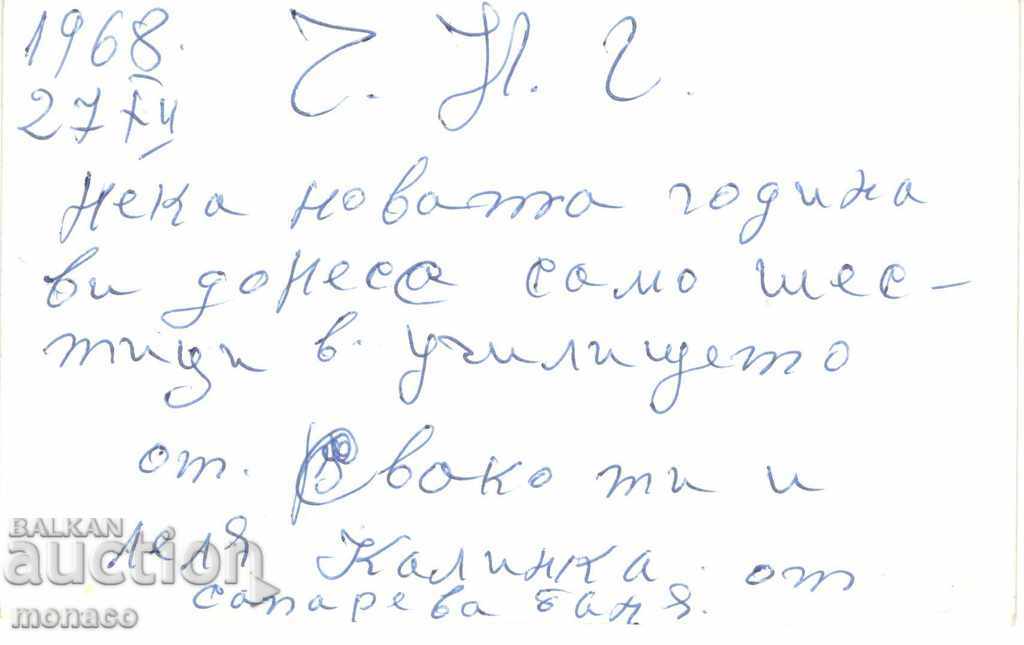 1968.
27 XII
Ч. Н. Г.
Нека новата година
ви донесе само шес-
тици в училището
от. Свако ти и
Леля Калинка. от
сапарева баня.
BALKAN
auction
monaco